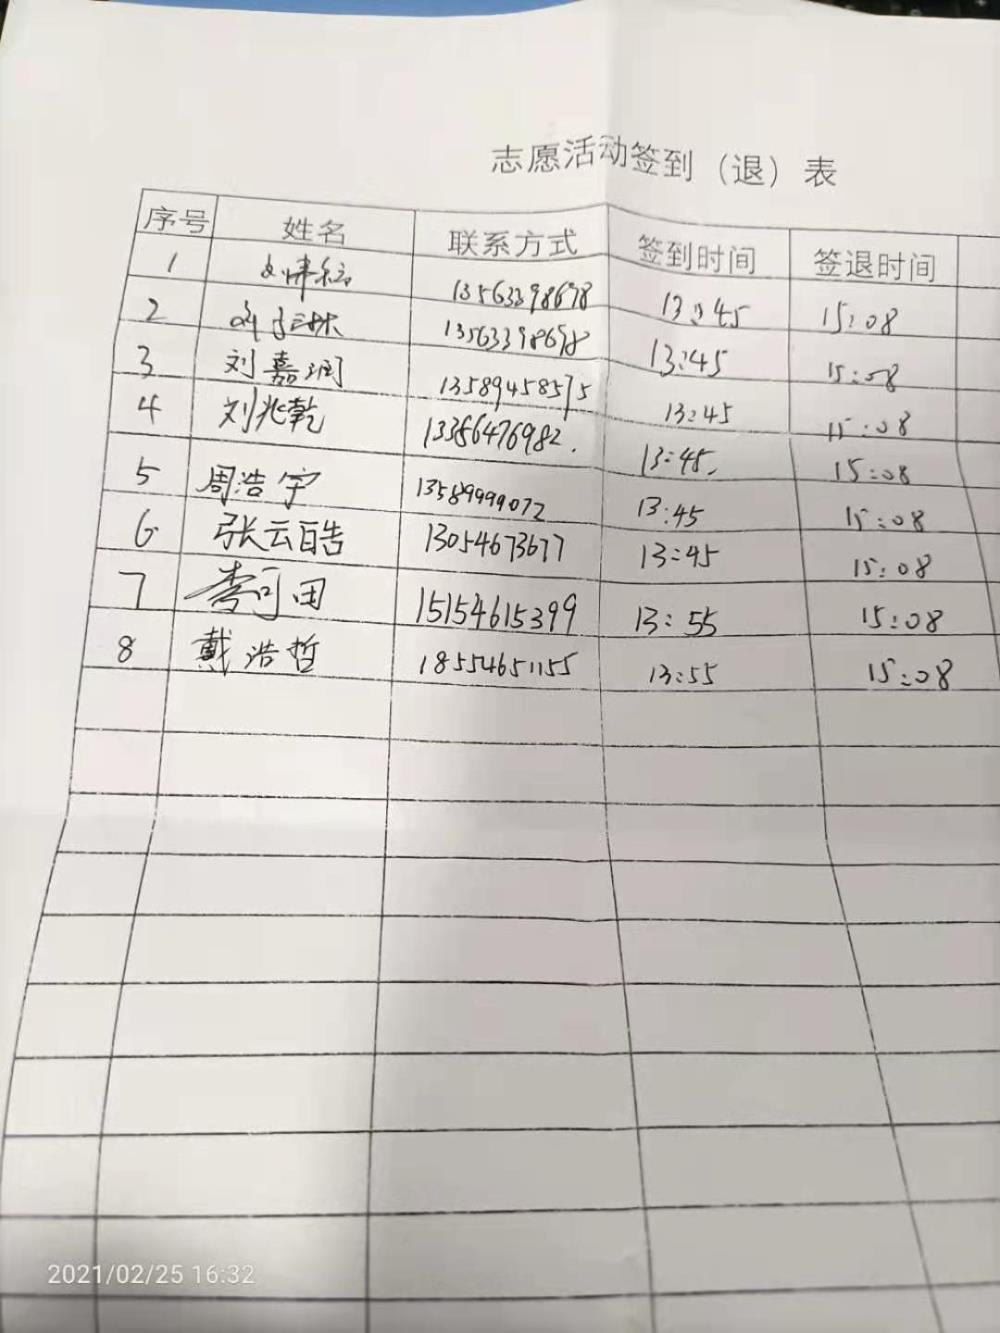 志愿活动签到（退）表
序号 姓名 联系方式 签到时间 签退时间
1 13563398678 13:45 15:08
2 13563398678 13:45 15:08
3 刘嘉润 13589458575 13:45 15:08
4 刘兆乾 13386476982. 13:45. 15:08
5 周浩宇 13589999072 13:45 15:08
6 张云皓 13054673677 13:45 15:08
7 李可田 15154615399 13:55 15:08
8 戴浩哲 18554651155 13:55 15:08
2021/02/25 16:32